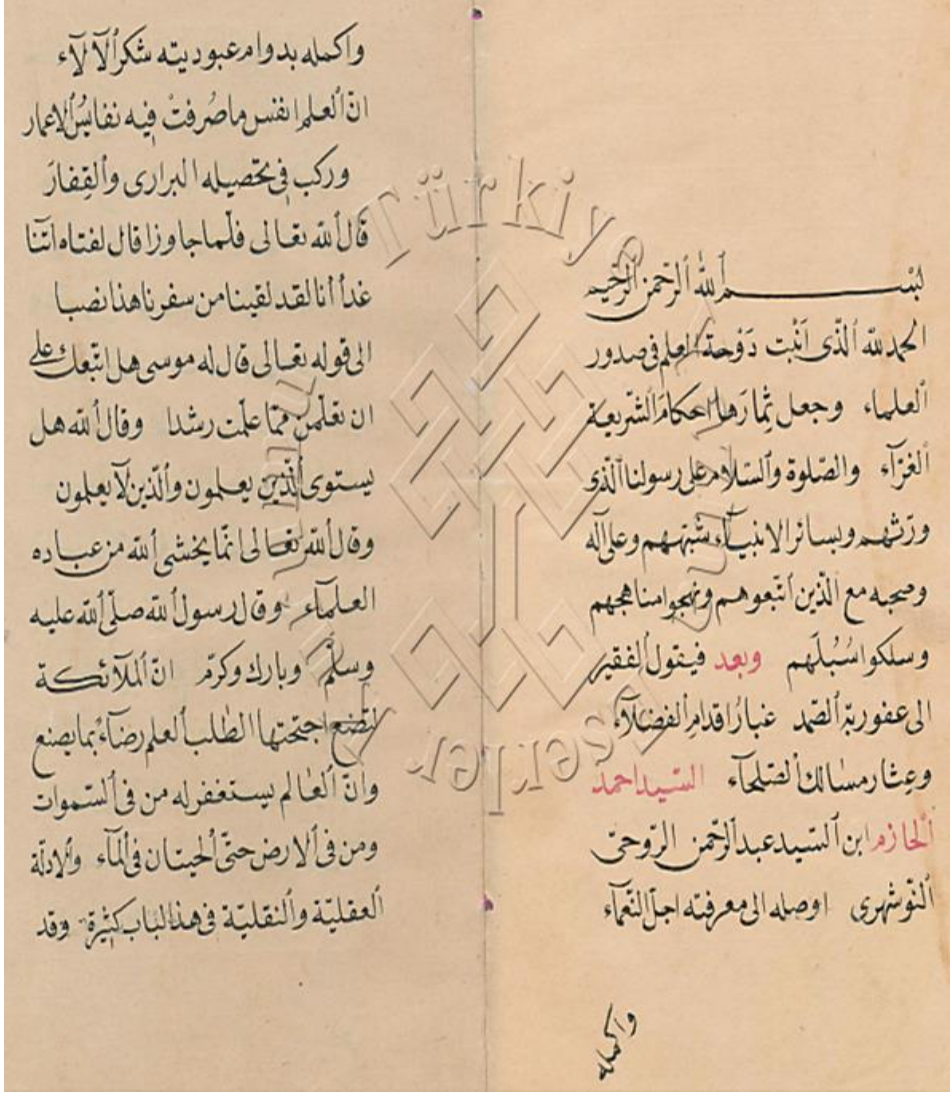 بسم الله الرحمن الرحيم
الحمد لله الذى انبت دَوحة العلم فى صدور
العلماء وجعل ثِمارَها احكامَ الشريعة
الغرّآء والصّلوة والسّلام على رسولنا الّذى
ورّثهم وبسائر الانبيآء شبّههم وعلى آله
وصحبه مع الّذين اتّبعوهم ونهجوا مناهجهم
وسلكوا سُبُلَهم وبعد فيقول الفقير
الى عفو ربّه الصّمد غبارُ اقدامِ الفضلآء
وعِثار مسالك الصّلحآء السّيد احمد
الحازم ابن السّيد عبد الرّحمن الرّوحىّ
النّوشهرى اوصله الى معرفته اجلّ النّعمآء
واكمله
واكمله بدوام عبوديته شكر الآلآء
انّ العلم انفس ما صُرفتْ فيه نفائسُ الاعمار
وركب فى تحصيله البرارى والقِفارَ
قال الله تعالى فلمّا جاوزا قال لفتاه اتنا
غدأنا لقد لقينا من سفرنا هذا نصبا
الى قوله تعالى قال له موسى هل اتّبعك على
ان تعلّمن ممّا علّمت رشدا وقال الله هل
يستوى الّذين يعلمون والّذين لا يعلمون
وقال الله تعالى انّما يخشى الله من عباده
العلمآء وقال رسول الله صلّى الله عليه
وسلّم وبارك وكرّم انّ الملآئكة
لتضع اجنحتها لطالب العلم رضآءً بما يصنع
وانّ العالم يستغفر له من فى السّموات
ومن فى الارض حتّى الحيتان فى المآء والادلّة
العقليّة والنقليّة فى هذا الباب كثيرة وقد
Türkiye
Yazma Eserler